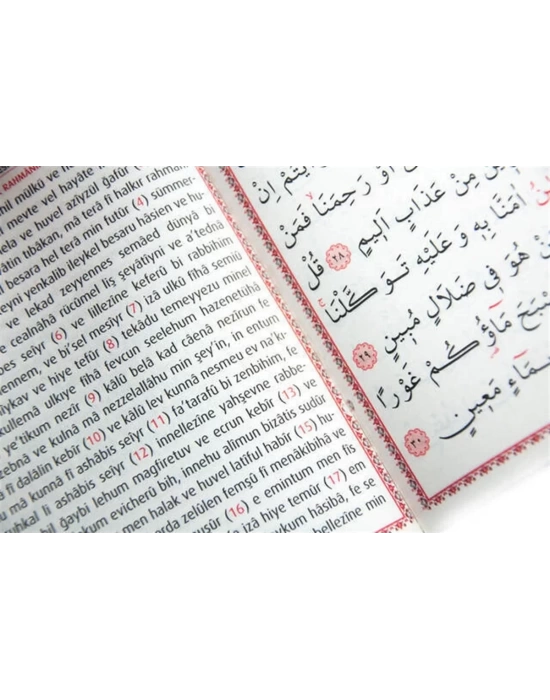 RAHMAN
mülkü ve
meyte vel hayâte
ve huvel azîyzül ğafûr
tıbâkan, mâ terâ fî halkır rahman
besara hel terâ min futûr (4) sümmer-
yenkalib ileykel besaru hâsien ve hu-
ve lekad zeyyennes semâed dünyâ bi
ve cealnâhâ rücûmel liş şeyâtîyni ve a'tednâ
seîyr (6) ve lillezîne keferû bi rabbihim
ve bi'sel mesîyr (7) izâ ülkû fîhâ semiû
ve hiye tefûr (8) tekâdu temeyyezu minel
kullemâ ulkıye fîhâ fevcun seelehum hazenetühâ
e'tikum nezîr (9) kâlû belâ kad câenâ nezîrun fe
zebnâ ve kulnâ mâ nezzelallâhu min şey'in, in entum
fî dalâlin kebîr (10) ve kâlû lev kunnâ nesmeu ev na'kı-
mâ kunnâ fî ashâbis seîyr (11) fa'terafû bi zenbihim, fe
uhkal li ashâbis seîyr (12) innellezîne yahşevne rabbe-
bil ğaybi lehum mağfiretuv ve ecrun kebîr (13) ve
kum evicherû bih, innehu alîmun bizâtis sudûr
men halak ve huvel latîful habîr (15) hu-
arda zelûlen femşû fî menâkibihâ ve
nuşûr (16) e emintum men fis
izâ hiye temûr (17) em
aykum hâsibâ, fe se
bellezîne min
اِنْ
اَوْ رَحِمَنَا فَمَنْ
مِنْ عَذَابٍ اَلِيمٍ ٢٨ قُلْ
اٰمَنَّا بِهِ وَعَلَيْهِ تَوَكَّلْنَا
هُوَ فِي ضَلَالٍ مُبِينٍ ٢٩
مَاؤُكُمْ غَوْرًا
مَعِينٍ ٣٠